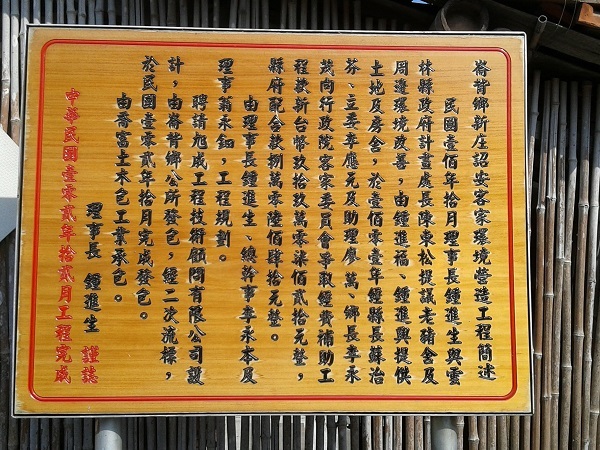 崙背鄉新庄詔安客家環境營造工程簡述
民國壹佰年拾月理事長鍾進生與雲
林縣政府計畫處長陳東松提議老豬舍及
周邊環境改善，由鍾進福、鍾進興提供
土地及房舍，於壹佰零壹年經縣長蘇治
芬、立委李應元及助理廖萬、鄉長李永
茂向行政院客家委員會爭取經費補助工
程款新台幣玖拾玖萬零柒佰貳拾元整，
縣府配合款捌萬零陸佰肆拾元整。
由理事長鍾進生、總幹事李永本及
理事翁永鈿，工程規劃。
聘請旭成工程技術顧問有限公司設
計，由崙背鄉公所發包，經二次流標，
於民國壹零貳年拾月完成發包。
由喬富土木包工業承包。
理事長 鍾進生 謹誌
中華民國壹零貳年拾貳月工程完成